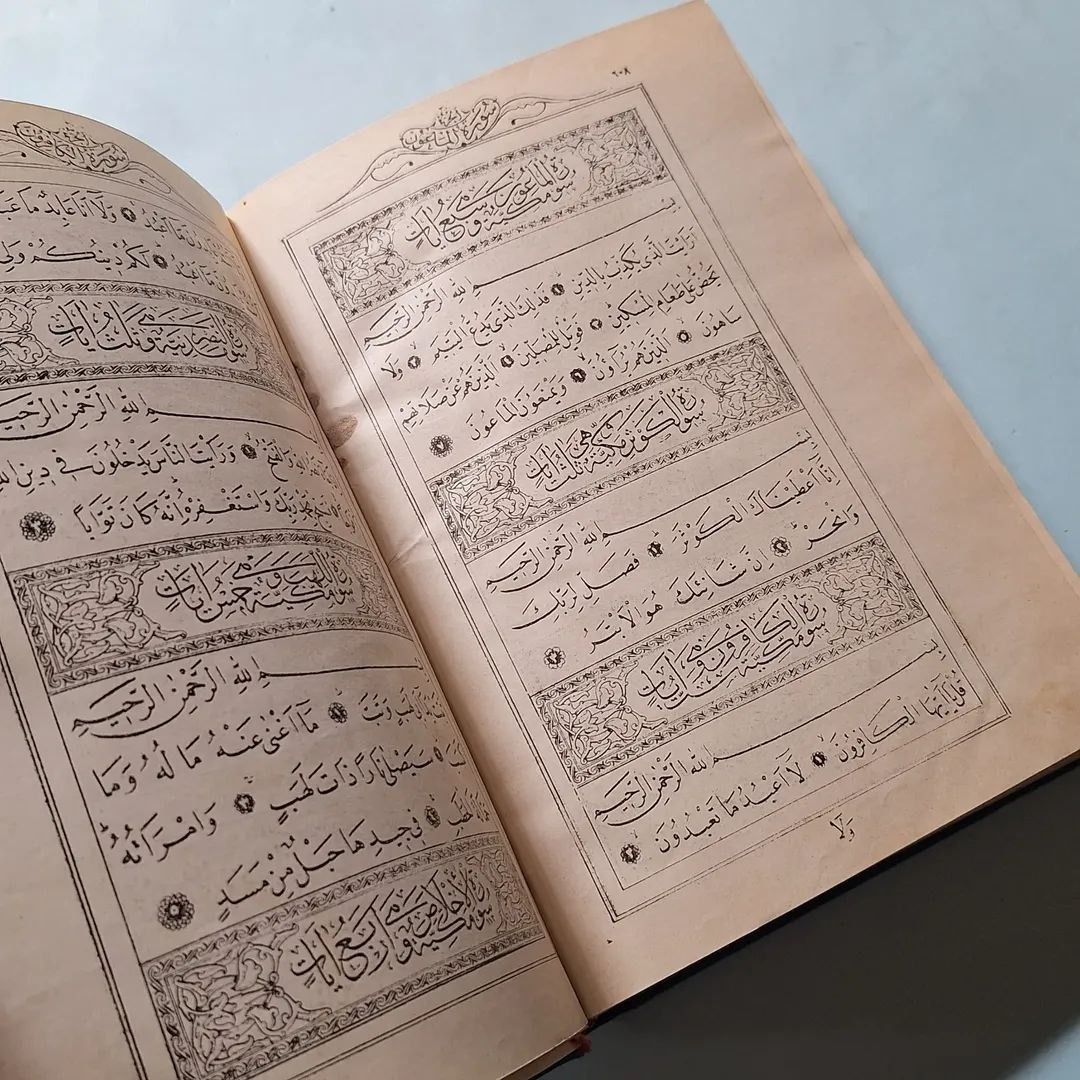 ٦٠٨
سورة الماعون
سورة الماعون مكية وهي سبع آيات
بِسْمِ اللهِ الرَّحْمٰنِ الرَّحِيمِ
اَرَاَيْتَ الَّذِي يُكَذِّبُ بِالدِّينِ ١ فَذٰلِكَ الَّذِي يَدُعُّ الْيَتِيمَ ٢ وَلَا
يَحُضُّ عَلٰى طَعَامِ الْمِسْكِينِ ٣ فَوَيْلٌ لِلْمُصَلِّينَ ٤ اَلَّذِينَ هُمْ عَنْ صَلَاتِهِمْ
سَاهُونَ ٥ اَلَّذِينَ هُمْ يُرَاؤُنَ ٦ وَيَمْنَعُونَ الْمَاعُونَ ٧
سورة الكوثر مكية وهي ثلث آيات
بِسْمِ اللهِ الرَّحْمٰنِ الرَّحِيمِ
اِنَّا اَعْطَيْنَاكَ الْكَوْثَرَ ١ فَصَلِّ لِرَبِّكَ
وَانْحَرْ ٢ اِنَّ شَانِئَكَ هُوَ الْاَبْتَرُ ٣
سورة الكافرون مكية وهي ست آيات
بِسْمِ اللهِ الرَّحْمٰنِ الرَّحِيمِ
قُلْ يَا اَيُّهَا الْكَافِرُونَ ١ لَا اَعْبُدُ مَا تَعْبُدُونَ ٢
وَلَا
سورة الكافرون
مَا اَعْبُدُ ٣ وَلَا اَنَا عَابِدٌ مَا
مَا اَعْبُدُ ٥ لَكُمْ دِينُكُمْ وَلِيَ
سورة النصر مدنية وهي ثلث آيات
بِسْمِ اللهِ الرَّحْمٰنِ الرَّحِيمِ
اللهِ وَالْفَتْحُ ١ وَرَاَيْتَ النَّاسَ يَدْخُلُونَ فِي دِينِ
بِحَمْدِ رَبِّكَ وَاسْتَغْفِرْهُ اِنَّهُ كَانَ تَوَّابًا ٣
سورة اللهب مكية وهي خمس آيات
اللهِ الرَّحْمٰنِ الرَّحِيمِ
اَبِي لَهَبٍ وَتَبَّ ١ مَا اَغْنٰى عَنْهُ مَالُهُ وَمَا
كَسَبَ ٢ سَيَصْلٰى نَارًا ذَاتَ لَهَبٍ ٣ وَامْرَاَتُهُ
حَمَّالَةَ الْحَطَبِ ٤ فِي جِيدِهَا حَبْلٌ مِنْ مَسَدٍ ٥
سورة الاخلاص مكية وهي اربع آيات